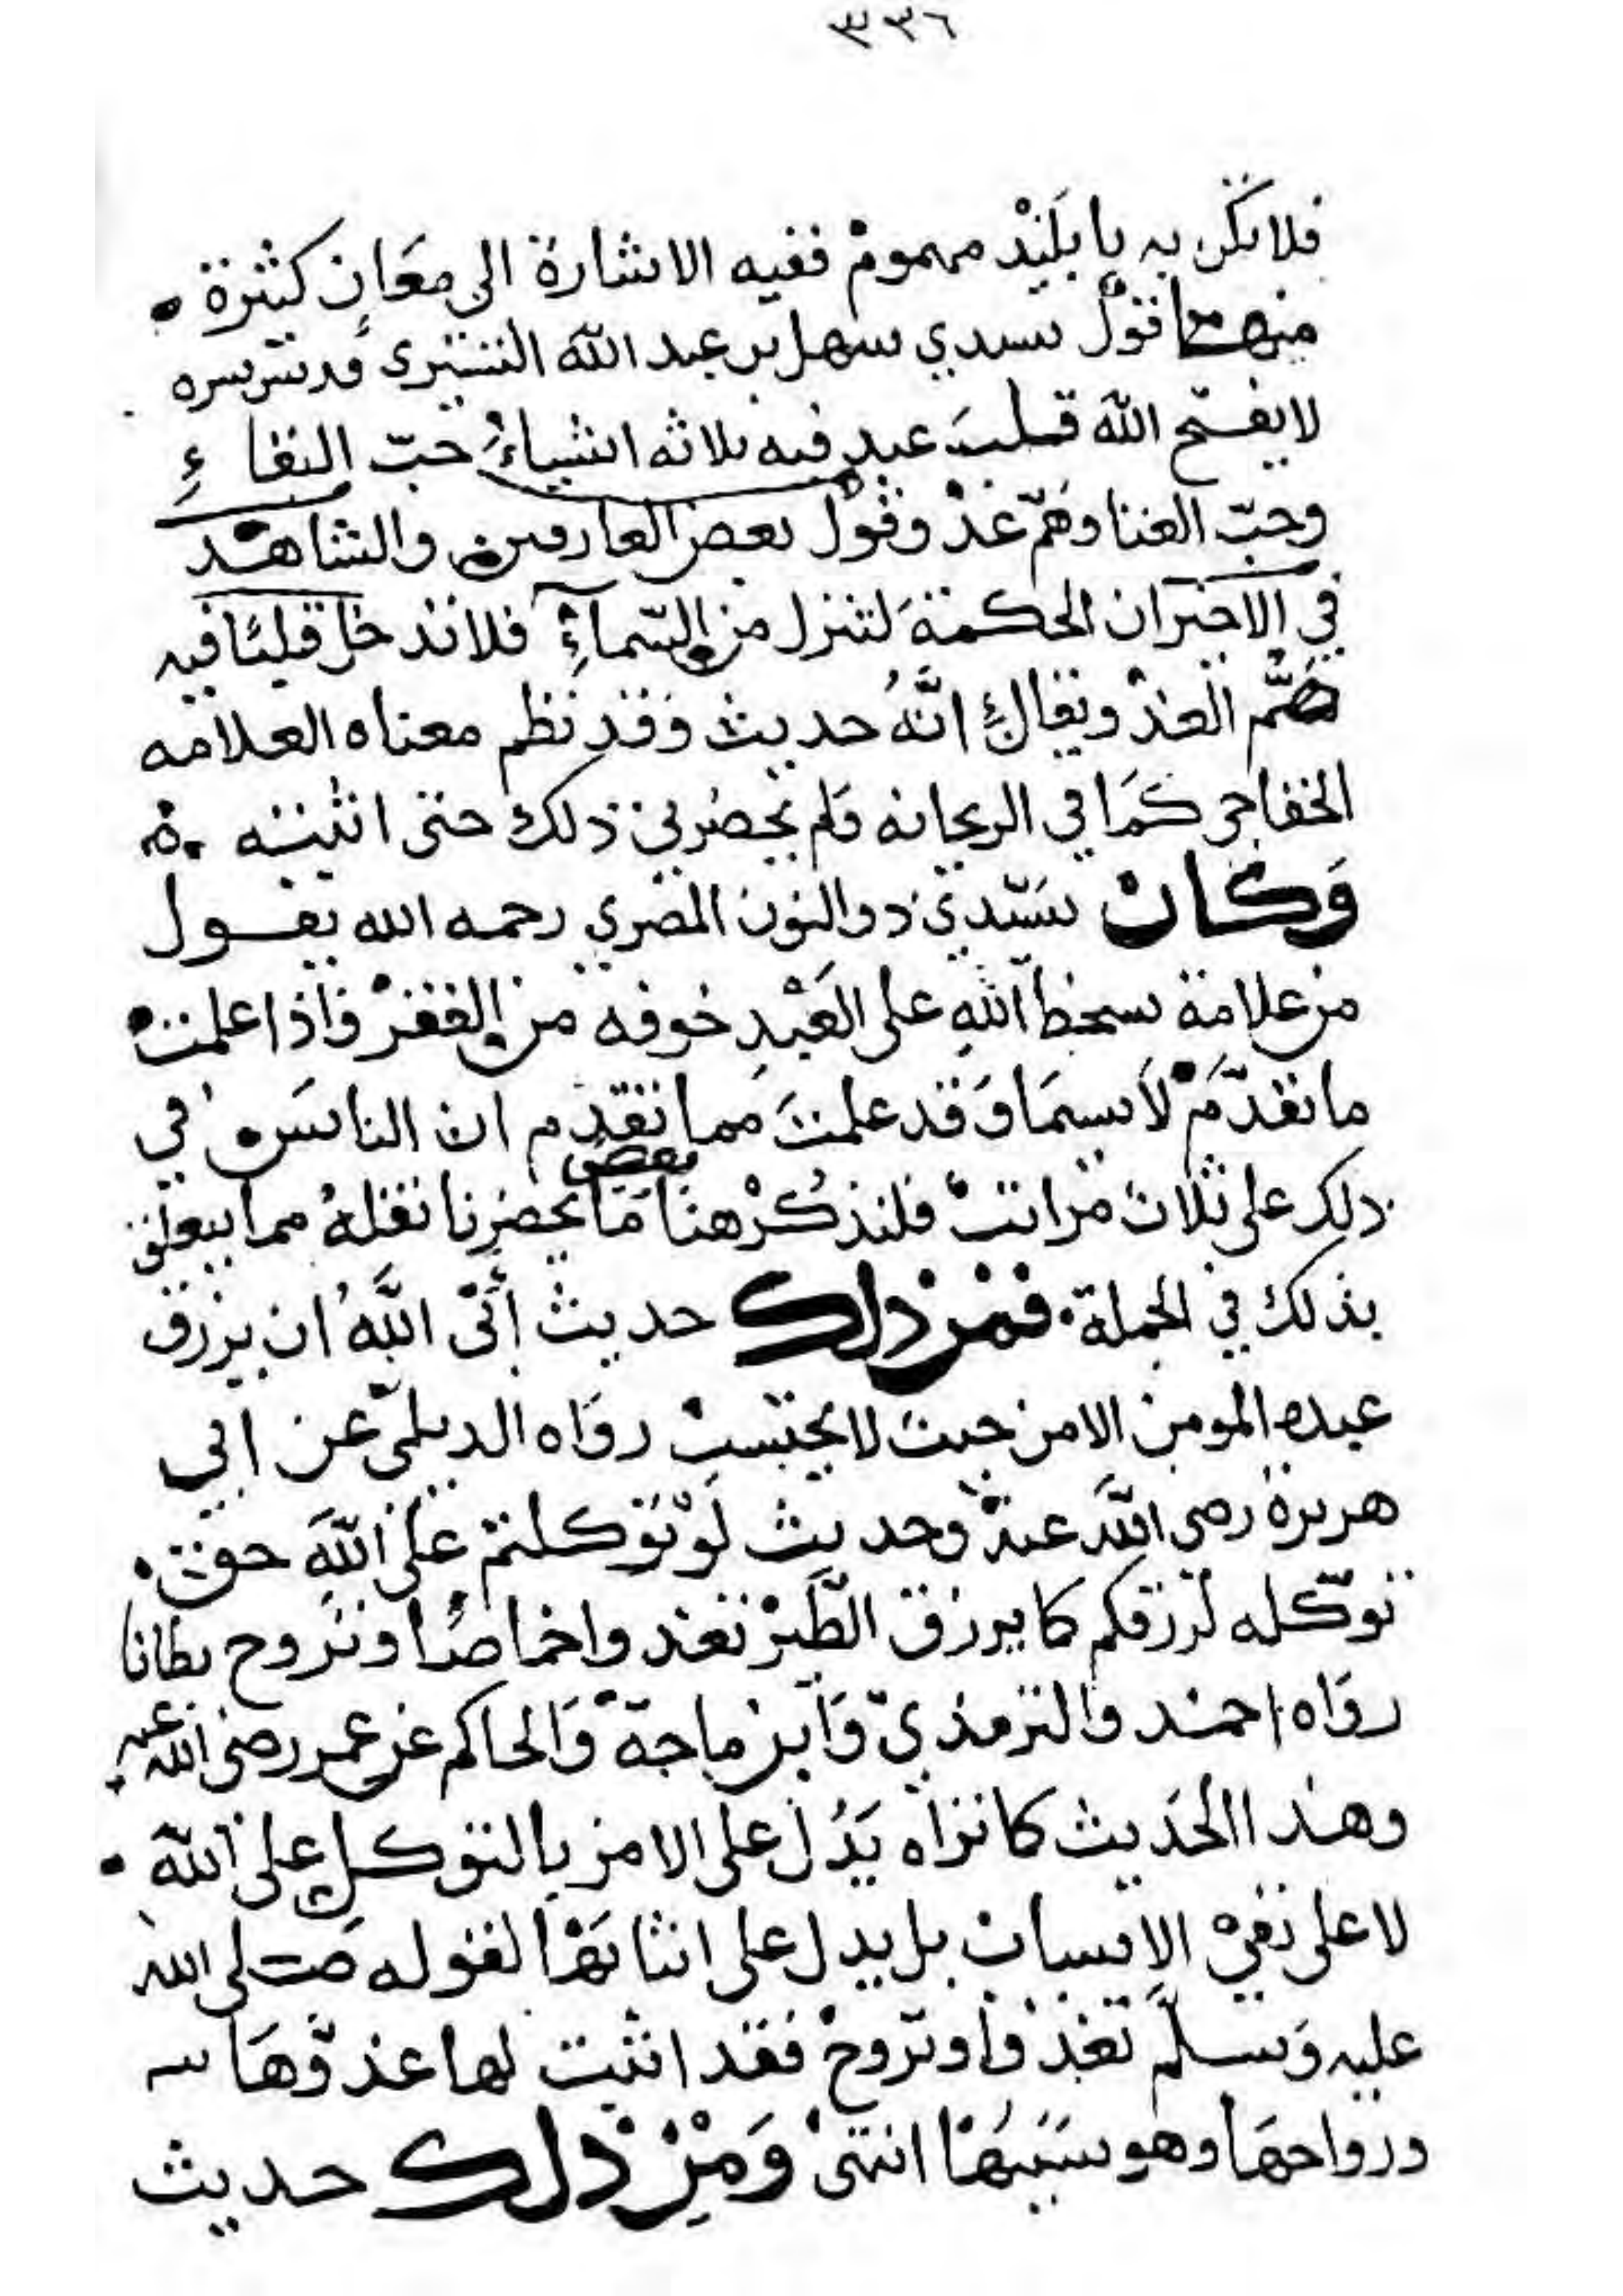 ٣٣٦
فلا تكن به يا بليد مهموم ففيه الاشارة الى معان كثيرة
منها قول سيدي سهل بن عبد الله التستري قدس سره
لا يفتح الله قلب عبد فيه ثلاثة اشياء حبّ البقاء
وحبّ الغنا وهمّ غد وقول بعض العارفين والشاهد
في الاخير ان الحكمة لتنزل من السّماء فلا تدخل قلبًا فيه
همّ الغد ويقال انّه حديث وقد نظم معناه العلامه
الخفاجي كما في الريحانه ولم يحضرني ذلك حتى اثبته
وكان سيّدي ذو النون المصري رحمه الله يقول
من علامة سخط الله على العبد خوفه من الفقر فاذا علمت
ما تقدّم لاسيما وقد علمت مما تقدم ان الناس في
ذلك على ثلاث مراتب فلنذكر هنا بعض ما يحضرنا نقله مما يتعلق
بذلك في الجملة فمن ذلك حديث أبى الله ان يرزق
عبده المومن الا من حيث لا يحتسب رواه الديلمي عن ابي
هريرة رضى الله عنه وحديث لو توكلتم على الله حق
توكله لرزقكم كما يرزق الطّير تغدوا خماصًا وتروح بطانا
رواه احمد والترمذيّ وابن ماجة والحاكم عن عمر رضى الله عنه
وهذا الحديث كما تراه يدل على الامر بالتوكل على الله
لا على نفي الاسباب بل يدل على اثباتها لقوله صلى الله
عليه وسلّم تغدوا وتروح فقد اثبت لها غدوّها
ورواحها وهو سببها انتهى ومن ذلك حديث